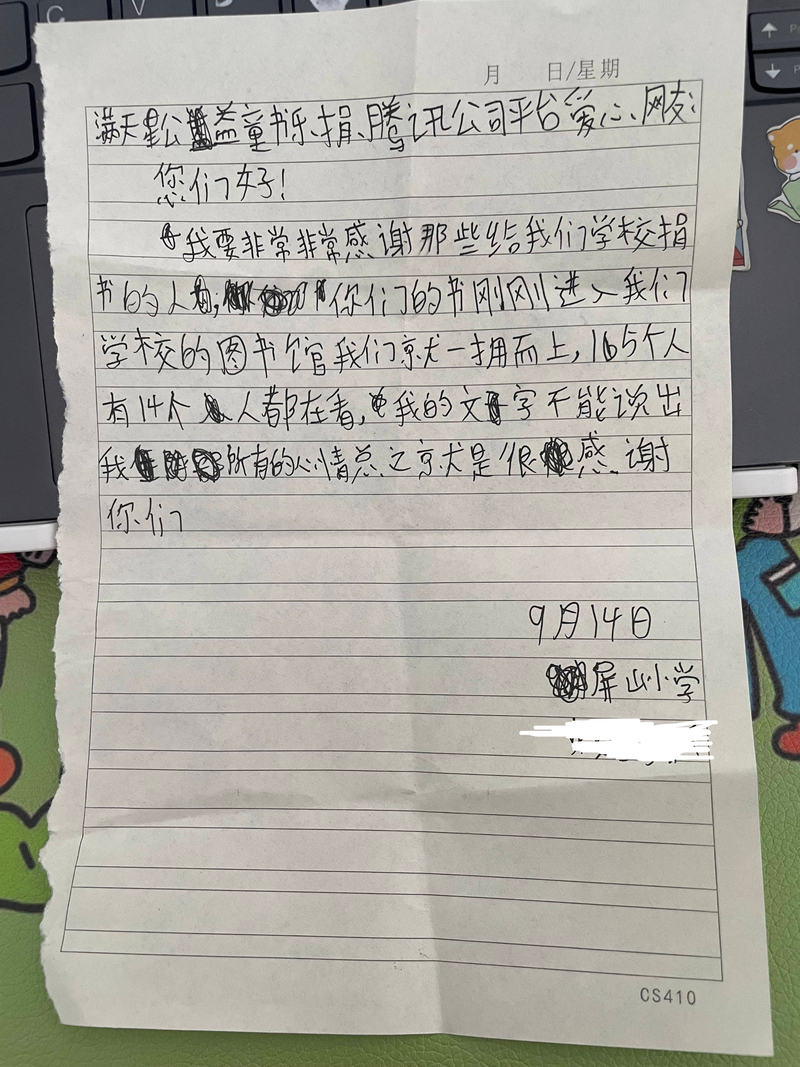 月 日/星期
满天星公益童书乐捐、腾讯公司平台爱心网友:
您们好!
我要非常非常感谢那些给我们学校捐
书的人,你们的书刚刚进入我们
学校的图书馆我们就一拥而上,165个人
有14个人都在看,我的文字不能说出
我所有的心情总之就是很感谢
你们
9月14日
屏山小学
CS410